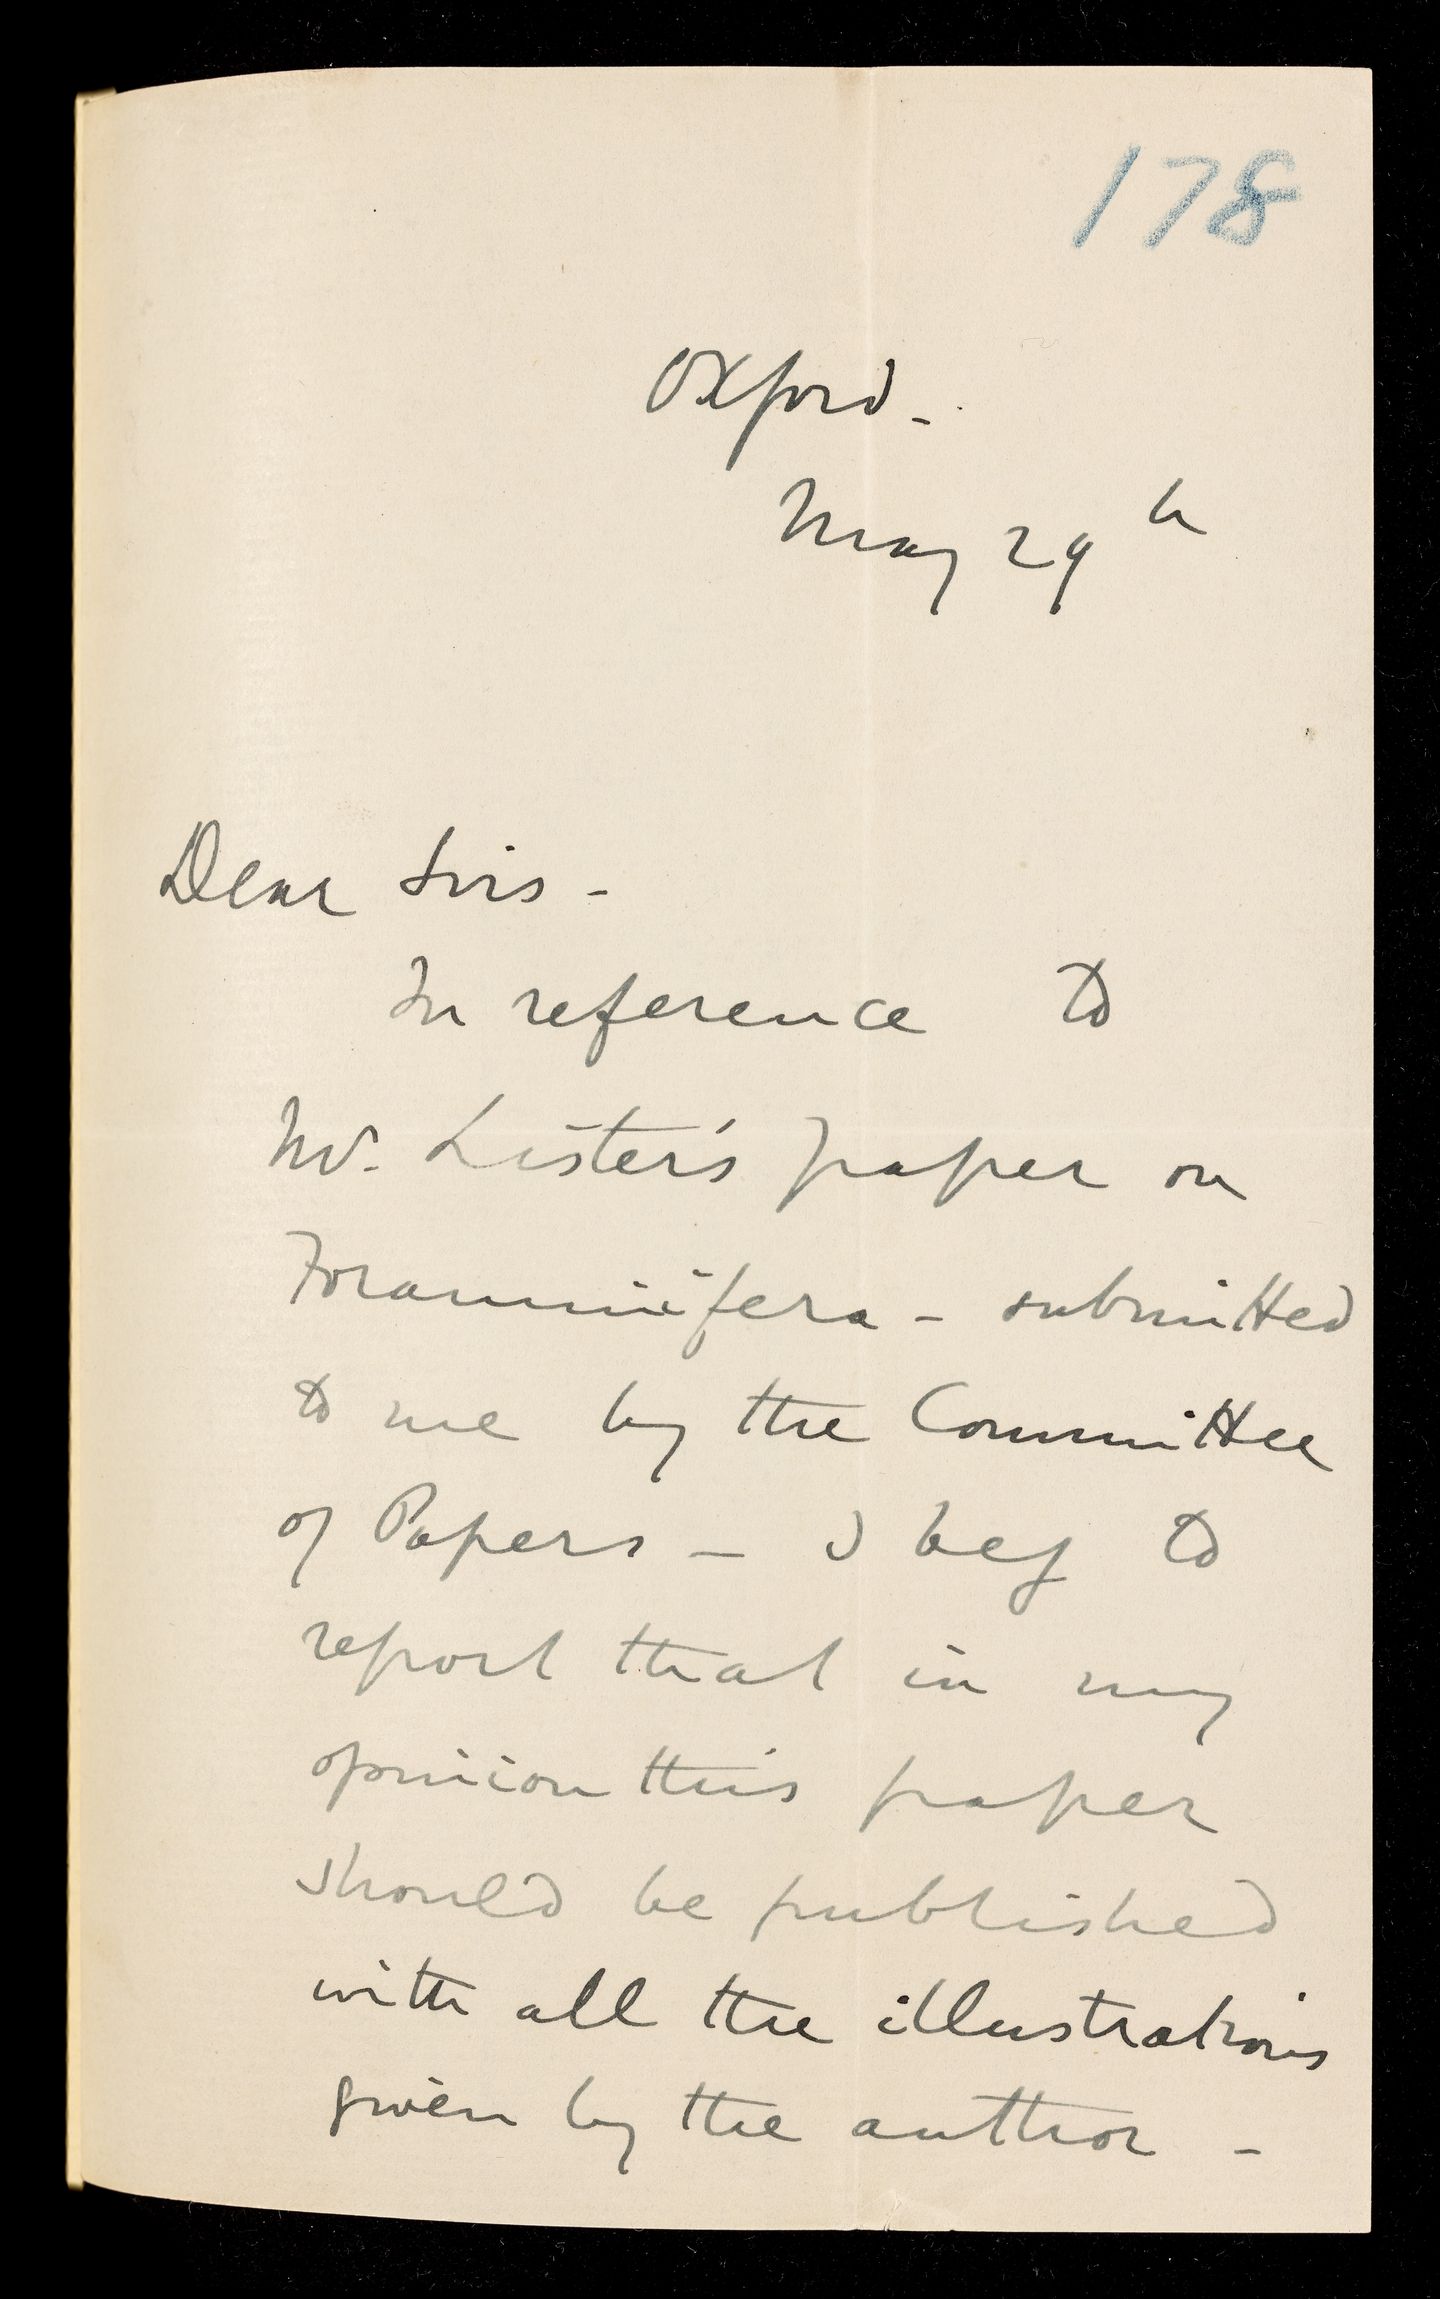 178
Oxford -
May 29th
Dear Sirs -
In reference to
Mr. Lister's paper on
Foraminifera - submitted
to me by the Committee
of Papers - I beg to
report that in my
opinion this paper
should be published
with all the illustrations
given by the author -